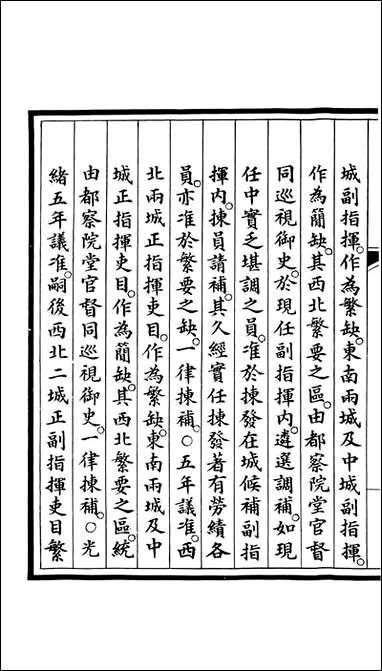 城副指揮。作為繁缺。東南兩城及中城副指揮。
作為簡缺。其西北繁要之區。由都察院堂官督
同巡視御史。於現任副指揮內。遴選調補。如現
任中實乏堪調之員。准於揀發在城候補副指
揮內。揀員請補。其久經實任揀發著有勞績各
員。亦准於繁要之缺。一律揀補。○五年議准。西
北兩城正指揮吏目。作為繁缺。東南兩城及中
城正指揮吏目。作為簡缺。其西北繁要之區。統
由都察院堂官督同巡視御史。一律揀補。○光
緒五年議准。嗣後西北二城正副指揮吏目繁